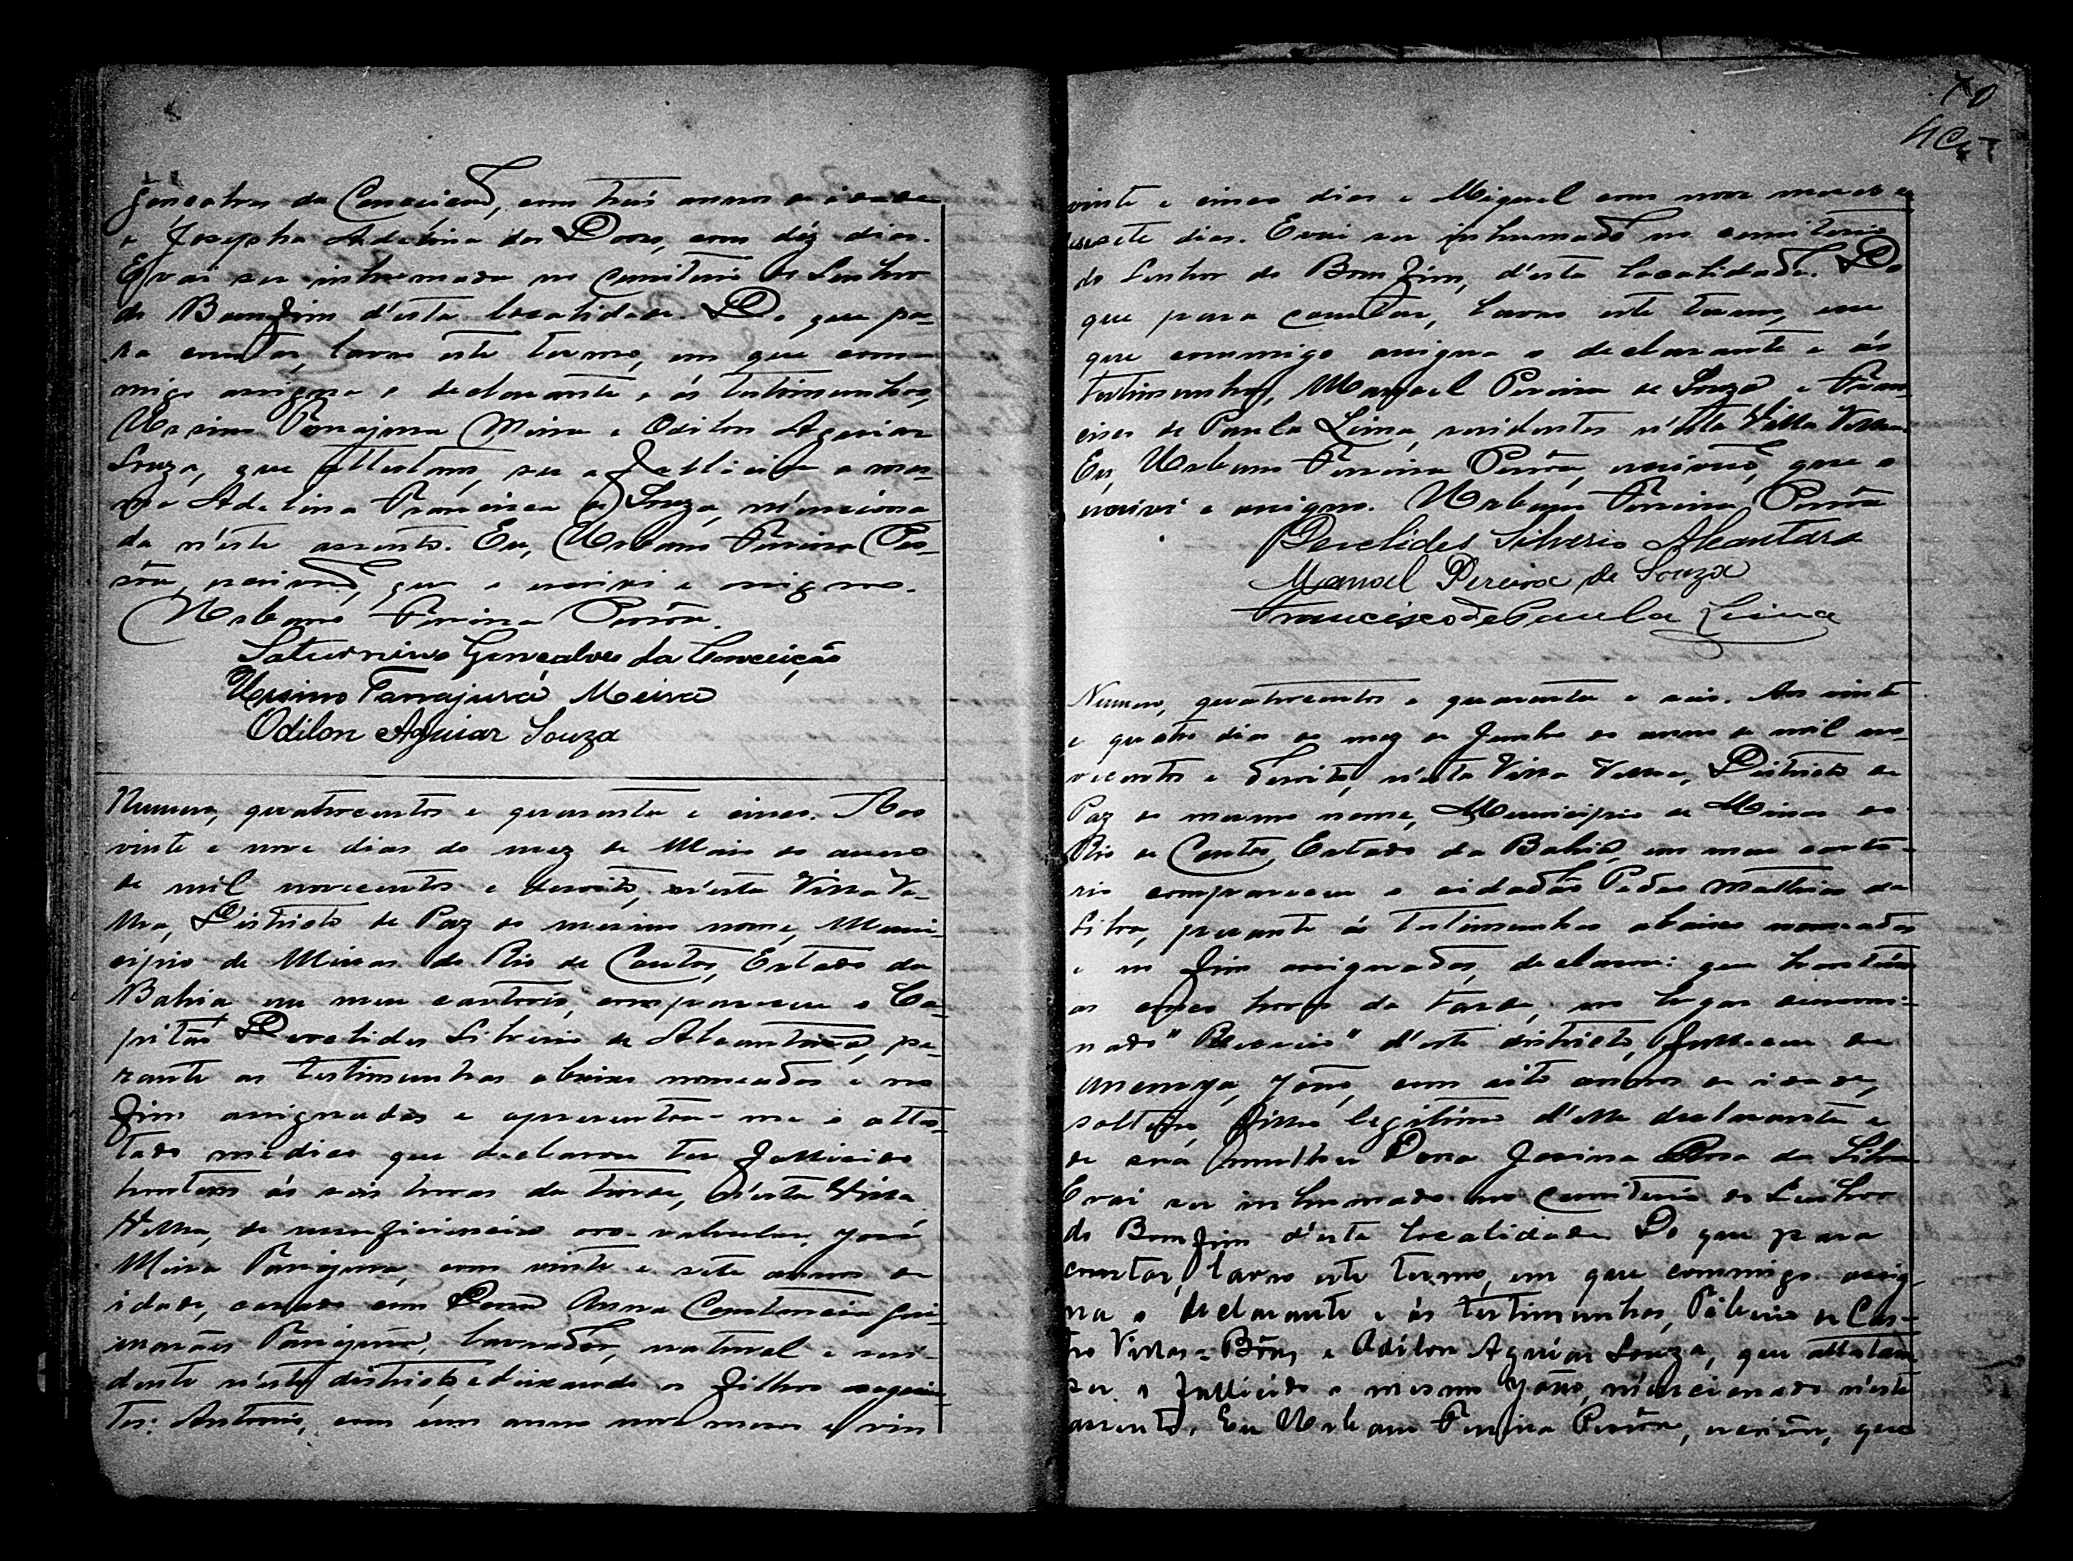 Gonçalves da Conceicaõ, com três annos de idade
e Josepha Adelina das Dores, com déz dias.
E vai ser inhumada no Cemiterio do Senhor
do Bomfim d'esta localidade. Do que pa-
ra constar, lavro este termo, em que com-
migo assigna o declarante e ás testimunhas,
Ursino Tanajura Meira e Odilon Aguiar
Souza, que attestam, ser a fallicida a mes-
ma Adelina Francisca de Souza, ménciona
da n'éste assento. Eu, Urbano Ferreira Pes-
sôa, escrivaõ, que o escrivi e assigno.
Urbano Ferreira Pessôa.
Saturnino Gonçalves da Conceição
Ursino Tanajura Meira
Odilon Aguiar Souza
Numero, quatrocentos e quarenta e cinco. Aos
vinte e nove dias do mez de Maio do anno
de mil novecentos e dezoito, n'esta Villa Ve-
lha, Districto de Paz do mesmo nome, Muni-
cipio de Minas do Rio de Contas, Estado da
Bahia em meu cartorio, compareceu o Ca-
pitaõ Deoclides Silverio de Alcantara, pe-
rante as testimunhas abaixo nomeadas e no
fim assignadas e aprezentou-me o attes-
tado médico que declarou ter fallicido
hontem ás seis horas da tarde, n'esta Villa
Velha, de insuficiencia oro-valvular, José
Meira Tanajura, com vinte e sete annos de
idade, casado com Dona Anna Constancia Gui-
marães Tanajura, lavrador, natural e resi-
dente n'este districto, e deixando os filhos seguin-
tes: Antonio, com um anno nove mezes e vin
70
vinte e cinco dias e Miguel com nove mezes e
desesete dias. E vai ser inhumado no cemiterio
do Senhor do Bom fim, d'esta localidade. Do
que para constar, lavro este termo, em
que commigo assigna o declarante e ás
testimunhas, Manoel Pereira de Souza e Fran-
cisco de Paula Lima, residentes n'esta Villa Velha.
Eu, Urbano Ferreira Pessôa, escrivaõ, que o
escrivi e assigno. Urbano Ferreira Pessôa
Deoclides Silverio Alcantara
Manoel Pereira de Souza
Francisco de Paula Lima
Numero, quatrocentos e quarenta e seis. Aos vinte
e quatro dias do mez de Junho do anno de mil no-
vecentos e dezoito, n'esta Villa Velha, Districto de
Paz do mesmo nome, Municipio de Minas do
Rio de Contas, Estado da Bahia, em meu carto-
rio compareceu o cidadaõ Pedro Mathias da
Silva, perante ás testimunhas abaixo nomeadas
e no fim assignadas, declarou: que hontem
as cinco horas da tarde, no lugar denomi-
nado " " d'este districto, falleceu de
anemia, João, com oito annos de idade,
solteiro, filho legitimo d'elle declarante e
de sua mulher Dona Jovina Rosa da Silva
E vai ser inhumado no Cemiterio do Senhor
do Bom fim d'esta localidade. Do que para
constar, lavro este termo, em que commigo assig-
na o declarante e ás testimunhas, Tiberio de Cas-
tro Villas-Bôas e Odilon Aguiar Souza, que attestam
ser o fallicido o mesmo João, méncionado n'este
assento. Eu Urbano Ferreira Pessôa, escrivão, que